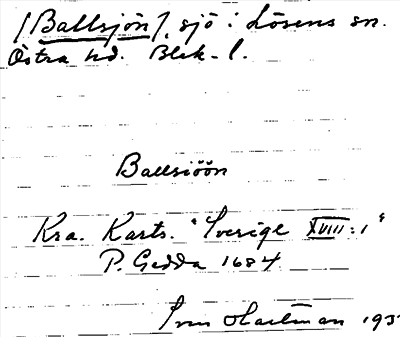 [Ballsjön], sjö i Lösens sn.
Östra hd. Blek. l.
Ballsiöön
Kra. Karts. "Sverige XVIII:1"
P. Gedda 1684
Sven Hartman 193